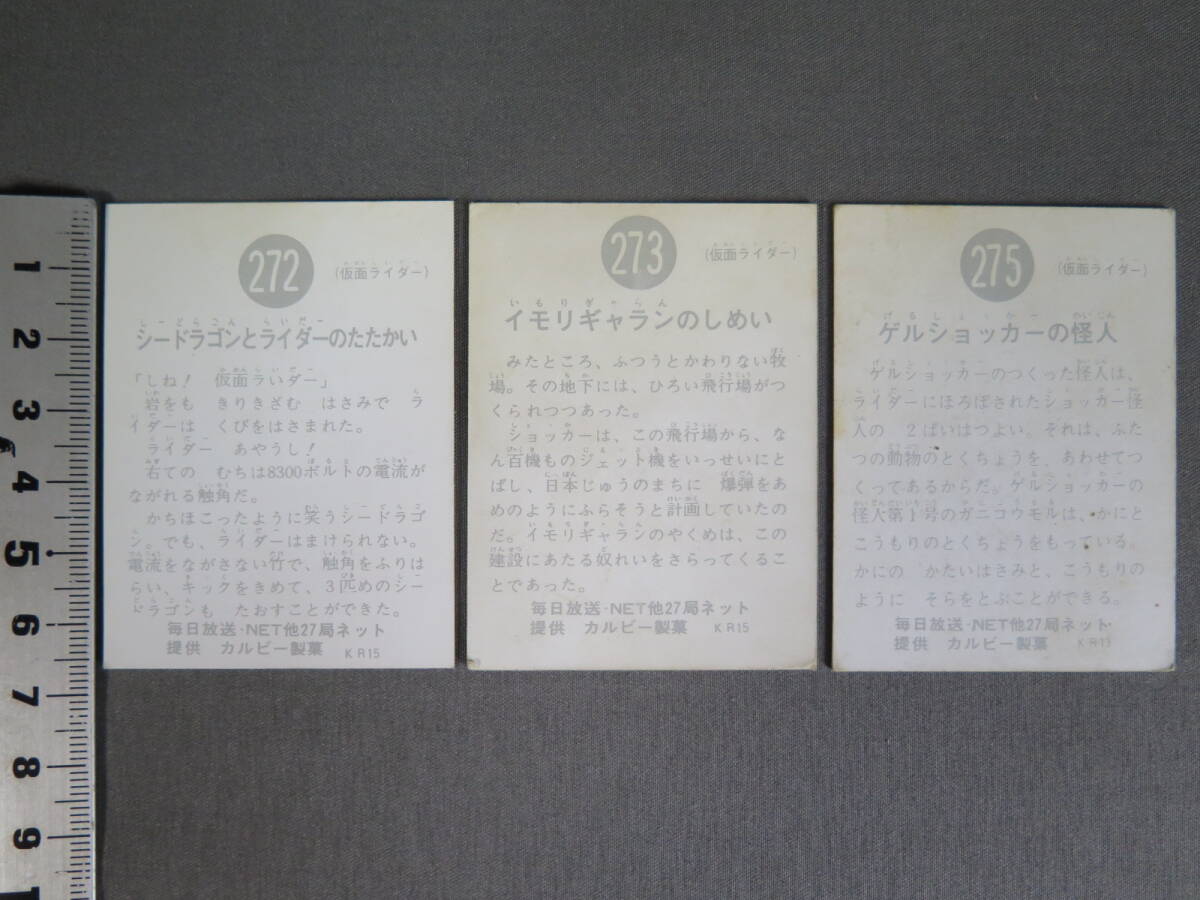 1
2
3
4
5
6
7
8
9
272
(仮面ライダー)
シードラゴンとライダーのたたかい
「しね! 仮面らいダー」
岩をも きりきざむ はさみで ラ
イダーは くびをはさまれた。
ライダー あやうし!
右ての むちは8300ボルトの電流が
ながれる触角だ。
かちほこったように笑うシードラゴ
ン。でも、ライダーはまけられない。
電流をながさない竹で、触角をふりは
らい、キックをきめて、3匹めのシー
ドラゴンも たおすことができた。
毎日放送・NET他27局ネット
提供 カルビー製菓 KR15
273
(仮面ライダー)
いもりぎゃらん
イモリギャランのしめい
みたところ、ふつうとかわりない牧
場。その地下には、ひろい飛行場がつ
くられつつあった。
ショッカーは、この飛行場から、な
ん百機ものジェット機をいっせいにと
ばし、日本じゅうのまちに 爆弾をあ
めのようにふらそうと計画していたの
だ。イモリギャランのやくめは、この
建設にあたる奴れいをさらってくるこ
とであった。
毎日放送・NET他27局ネット
提供 カルビー製菓 KR15
275
(仮面ライダー)
げるしょっかー かいじん
ゲルショッカーの怪人
ゲルショッカーのつくった怪人は、
ライダーにほろぼされたショッカー怪
人の 2ばいはつよい。それは、ふた
つの動物のとくちょうを、あわせてつ
くってあるからだ。ゲルショッカーの
怪人第1号のガニコウモルは、かにと
こうもりのとくちょうをもっている。
かにの かたいはさみと、こうもりの
ように そらをとぶことができる。
毎日放送・NET他27局ネット
提供 カルビー製菓